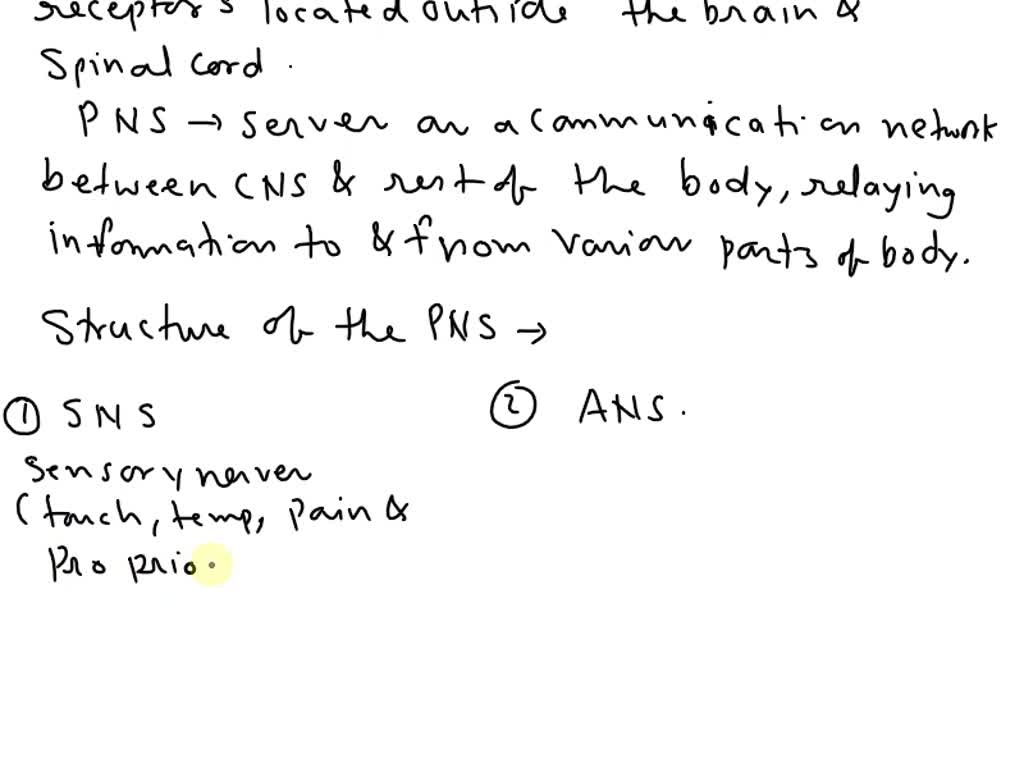 receptors located outside the brain &
Spinal cord.
PNS → serves as a communication network
between CNS & rest of the body, relaying
information to & from various parts of body.
Structure of the PNS →
① SNS ② ANS.
Sensory nerves
(touch, temp, pain &
Proprio